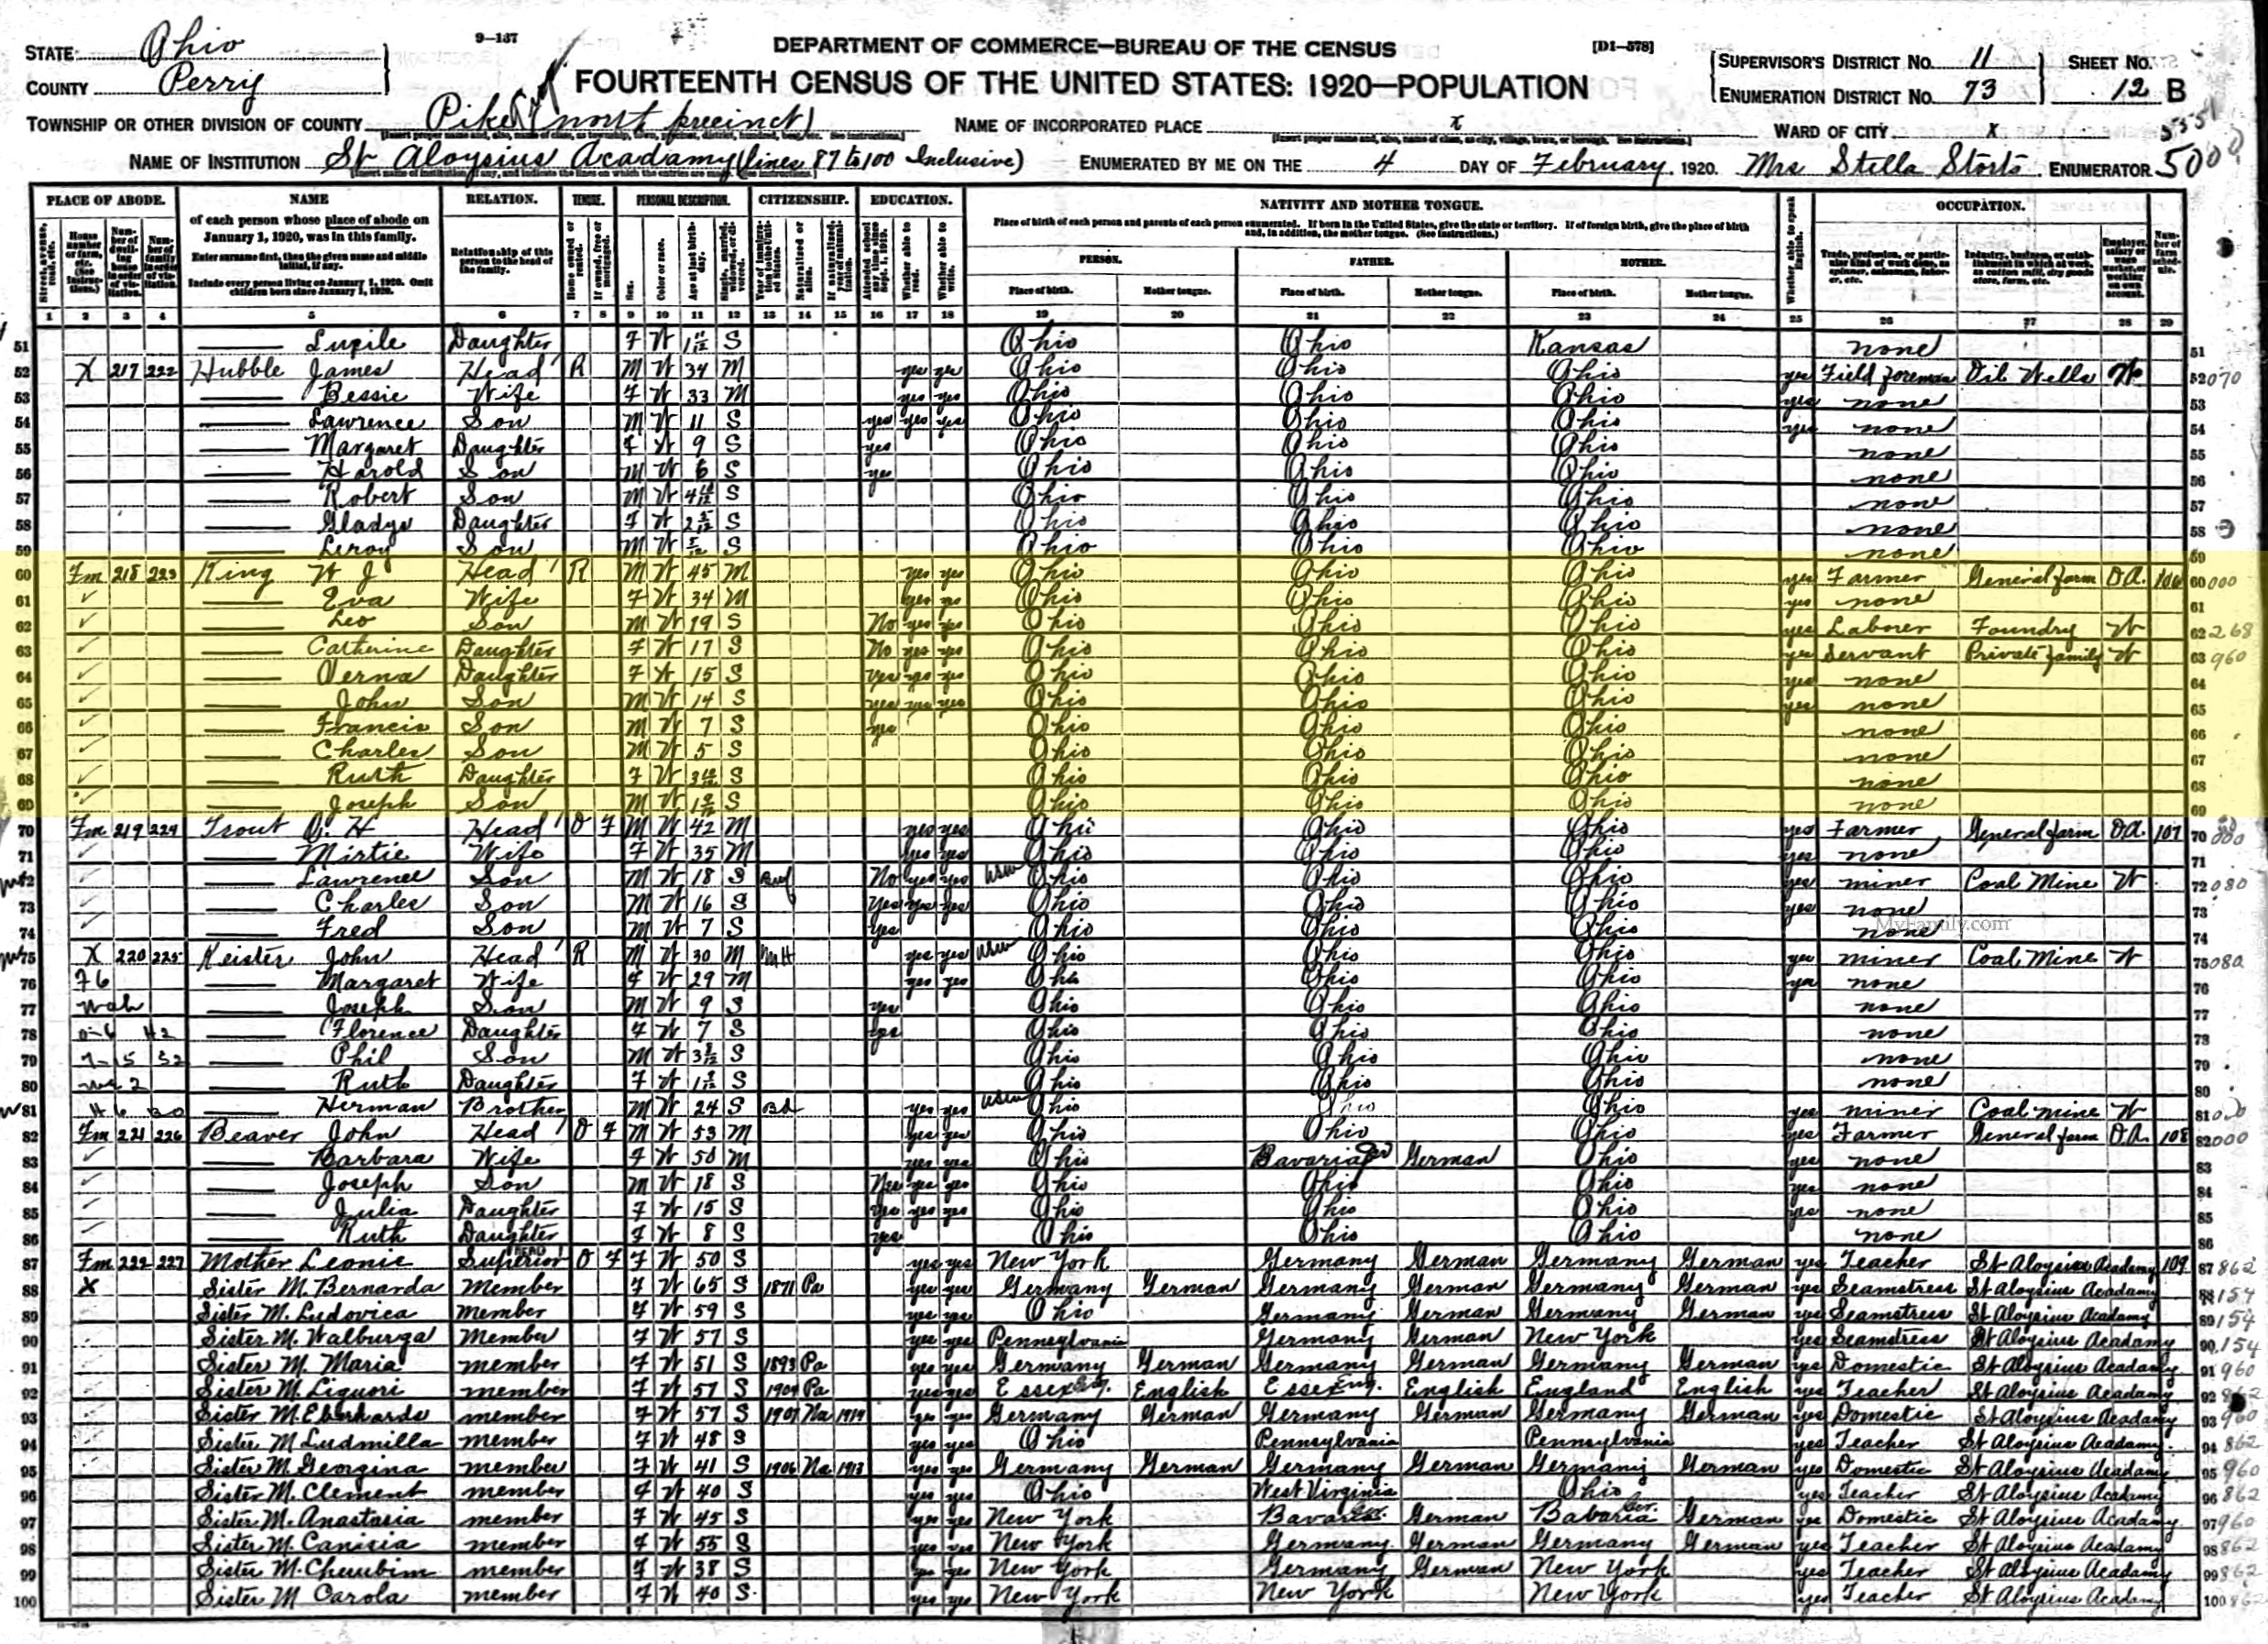 9—137
DEPARTMENT OF COMMERCE—BUREAU OF THE CENSUS
[D1—578]
STATE Ohio
COUNTY Perry
FOURTEENTH CENSUS OF THE UNITED STATES: 1920—POPULATION
SUPERVISOR'S DISTRICT No. 11 SHEET No.
ENUMERATION DISTRICT No. 73 12 B
TOWNSHIP OR OTHER DIVISION OF COUNTY Pike precinct) NAME OF INCORPORATED PLACE x WARD OF CITY x
NAME OF INSTITUTION St Aloysius Acadamy (lines 87 to 100 Inclusive) ENUMERATED BY ME ON THE 4 DAY OF February, 1920. Mrs Stella Storts ENUMERATOR 5000
PLACE OF ABODE. NAME RELATION. TENURE. PERSONAL DESCRIPTION. CITIZENSHIP. EDUCATION. NATIVITY AND MOTHER TONGUE. OCCUPATION.
of each person whose place of abode on January 1, 1920, was in this family.
Enter surname first, then the given name and middle initial, if any.
Include every person living on January 1, 1920. Omit children born since January 1, 1920.
Relationship of this person to the head of the family.
Place of birth of each person and parents of each person enumerated. If born in the United States, give the state or territory. If of foreign birth, give the place of birth and, in addition, the mother tongue. (See instructions.)
PERSON. FATHER. MOTHER.
Place of birth. Mother tongue. Place of birth. Mother tongue. Place of birth. Mother tongue.
1 2 3 4 5 6 7 8 9 10 11 12 13 14 15 16 17 18 19 20 21 22 23 24 25 26 27 28 29
51 Daughter F W S Ohio Ohio Kansas none 51
52 X 217 222 Hubble James Head R M W 34 M yes yes Ohio Ohio Ohio yes Field Foreman Oil Wells W 52 070
53 Bessie Wife F W 33 M yes yes Ohio Ohio Ohio yes none 53
54 Lawrence Son M W 11 S yes yes yes Ohio Ohio Ohio yes none 54
55 Margaret Daughter F W 9 S yes Ohio Ohio Ohio none 55
56 Harold Son M W 6 S yes Ohio Ohio Ohio none 56
57 Robert Son M W S Ohio Ohio Ohio none 57
58 Gladys Daughter F W S Ohio Ohio Ohio none 58
59 Leroy Son M W S Ohio Ohio Ohio none 59
60 Fm 218 223 King W J Head R M W 45 M yes yes Ohio Ohio Ohio yes Farmer General farm O.A. 106 60 000
61 Eva Wife F W 34 M yes Ohio Ohio Ohio yes none 61
62 Leo Son M W 19 S No yes yes Ohio Ohio Ohio yes Laborer Foundry W 62 268
63 Catherine Daughter F W 17 S No yes yes Ohio Ohio Ohio yes Servant Private family W 63 960
64 Verna Daughter F W 15 S yes yes yes Ohio Ohio Ohio yes none 64
65 John Son M W 14 S yes yes yes Ohio Ohio Ohio yes none 65
66 Francis Son M W 7 S yes Ohio Ohio Ohio none 66
67 Charles Son M W 5 S Ohio Ohio Ohio none 67
68 Ruth Daughter F W S Ohio Ohio Ohio none 68
69 Joseph Son M W S Ohio Ohio Ohio none 69
70 Fm 219 224 Trout H Head O F M W 42 M yes yes Ohio Ohio Ohio yes Farmer General farm O.A. 107 70 000
71 Mirtie Wife F W 35 M yes yes Ohio Ohio Ohio yes none 71
72 Lawrence Son M W 18 S No yes yes Ohio Ohio Ohio yes miner Coal Mine W 72 080
73 Charles Son M W 16 S yes yes yes Ohio Ohio Ohio yes none 73
74 Fred Son M W 7 S yes Ohio Ohio Ohio none 74
MyFamily.com
75 X 220 225 Keister John Head R M W 30 M yes yes Ohio Ohio Ohio yes miner Coal Mine W 75 080
76 Margaret Wife F W 29 M yes yes Ohio Ohio Ohio yes none 76
77 Joseph Son M W 9 S yes Ohio Ohio Ohio none 77
78 Florence Daughter F W 7 S yes Ohio Ohio Ohio none 78
79 Phil Son M W S Ohio Ohio Ohio none 79
80 Ruth Daughter F W S Ohio Ohio Ohio none 80
81 Herman Brother M W 24 S yes yes Ohio Ohio Ohio yes miner Coal mine W 81
82 Fm 221 226 Beaver John Head O F M W 53 M yes yes Ohio Ohio Ohio yes Farmer General farm O.A. 108 82 000
83 Barbara Wife F W 50 M yes yes Ohio Bavaria German Ohio yes none 83
84 Joseph Son M W 18 S yes yes Ohio Ohio Ohio yes none 84
85 Julia Daughter F W 15 S yes yes yes Ohio Ohio Ohio yes none 85
86 Ruth Daughter F W 8 S yes Ohio Ohio Ohio none 86
87 Fm 222 227 Mother Leonie Superior HEAD O F F W 50 S yes yes New York Germany German Germany German yes Teacher St Aloysius Academy 109 87 862
88 X Sister M. Bernarda Member F W 65 S 1871 Pa yes yes Germany German Germany German Germany German yes Seamstress St Aloysius Acadamy 88 154
89 Sister M. Ludovica member F W 59 S yes yes Ohio Germany German Germany German yes Seamstress St Aloysius Acadamy 89 154
90 Sister M. Walburga Member F W 57 S yes yes Pennsylvania Germany German New York yes Seamstress St Aloysius Acadamy 90 154
91 Sister M. Maria member F W 51 S 1893 Pa yes yes Germany German Germany German Germany German yes Domestic St Aloysius Acadamy 91 960
92 Sister M. Liguori member F W 57 S 1904 Pa yes yes Essex Eng. English Essex Eng. English England English yes Teacher St Aloysius Acadamy 92 862
93 Sister M. Eberharda member F W 57 S 1907 Na 1914 yes yes Germany German Germany German Germany German yes Domestic St Aloysius Acadamy 93 960
94 Sister M Ludmilla member F W 48 S yes yes Ohio Pennsylvania Pennsylvania yes Teacher St Aloysius Acadamy 94 862
95 Sister M. Georgina member F W 41 S 1906 Na 1913 yes yes Germany German Germany German Germany German yes Domestic St Aloysius Acadamy 95 960
96 Sister M. Clement member F W 40 S yes yes Ohio West Virginia Ohio yes Teacher St Aloysius Acadamy 96 862
97 Sister M. Anastasia member F W 45 S yes yes New York Bavaria Ger. German Babaria Ger. German yes Domestic St Aloysius Acadamy 97 960
98 Sister M. Canisia member F W 55 S yes yes New York Germany German Germany German yes Teacher St Aloysius Acadamy 98 862
99 Sister M. Cherubim member F W 38 S yes yes New York Germany German New York yes Teacher St Aloysius Acadamy 99 862
100 Sister M Carola member F W 40 S yes yes New York New York New York yes Teacher St Aloysius Acadamy 100 862